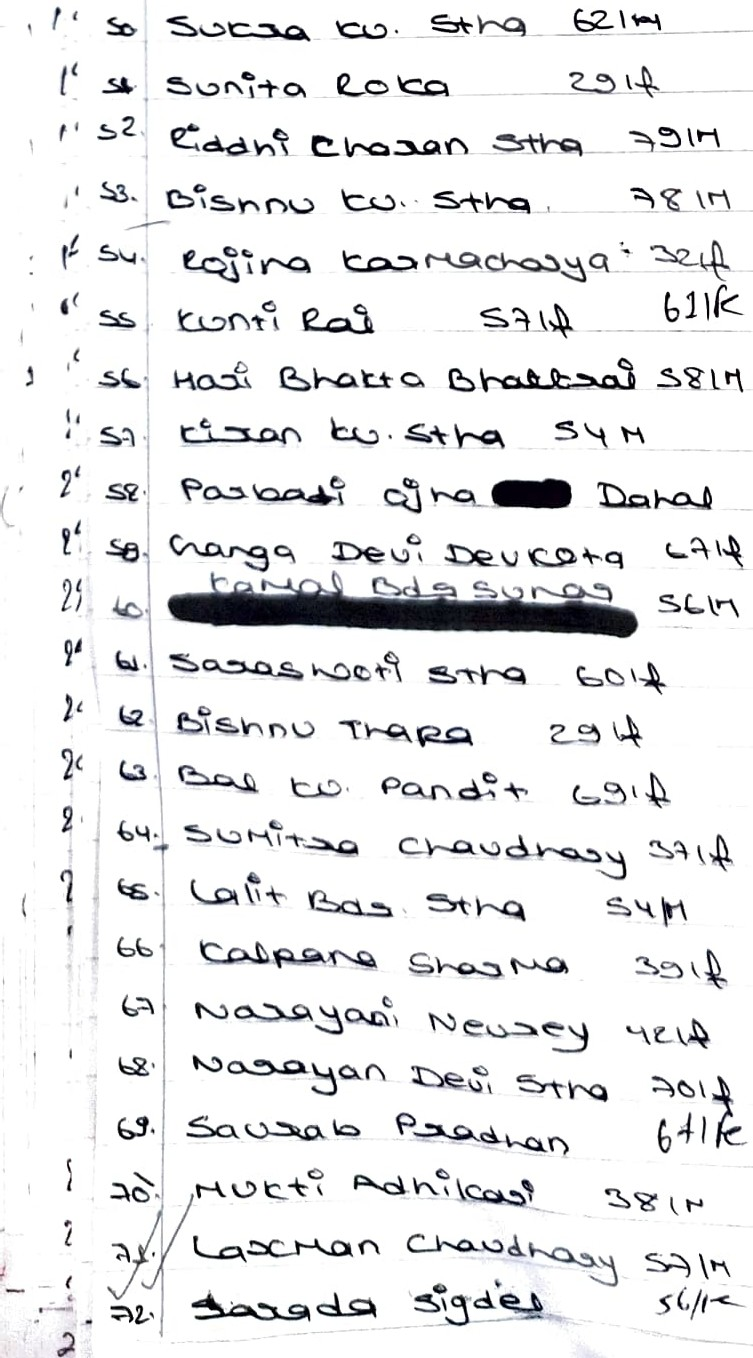 50 Sukra ku. Stha 62/M
51. Sunita Roka 29/f
52. Riddhi Charan Stha 79/M
53. Bishnu ku. Stha. 78/M
54. Rojina Karmacharya 32/f
55 Kunti Rai 57/f 61/K
56. Hari Bhakta Bhattrai 58/M
57. Kiran ku. Stha 54 M
58. Parbati Dahal
59. Ganga Devi Devkota 67/f
60. Kamal Bdr Sunar 56/M
61. Saraswoti Stha 60/f
62. Bishnu Thapa 29/f
63. Bal ku. Pandit 69/f
64. Sumitra Chaudhary 37/f
65. Lalit Bdr. Stha 54/M
66 Kalpana Sharma 39/f
67 Narayani Neurey 42/f
68. Narayan Devi Stha 70/f
69. Saurab Pradhan
70. Mukti Adhikari 38/M
71. Laxman Chaudhary 57/M
72. Sarada Sigdel